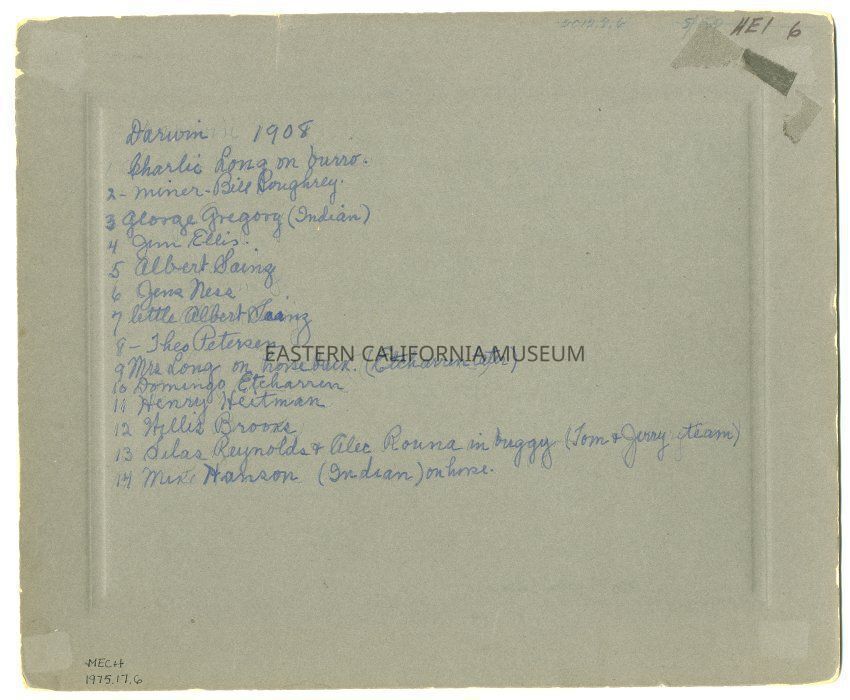 HEI 6
Darwin 1908
1 Charlie Long on burro.
2- miner-Bill Loughrey.
3 George Gregory (Indian)
4 Jim Ellis.
5 Albert Saing
6 Jens Ness
7 little Albert Saing
8- Theo Petersen
EASTERN CALIFORNIA MUSEUM
9 Mrs Long on horseback. (Etcharren
10 Domingo Etcharren
11 Henry Heitman
12 Willis Brooks
13 Silas Reynolds & Alec Rouna in buggy (Tom & Jerry team)
14 Mike Hanson (Indian) on horse.
MECH
1975.17.6